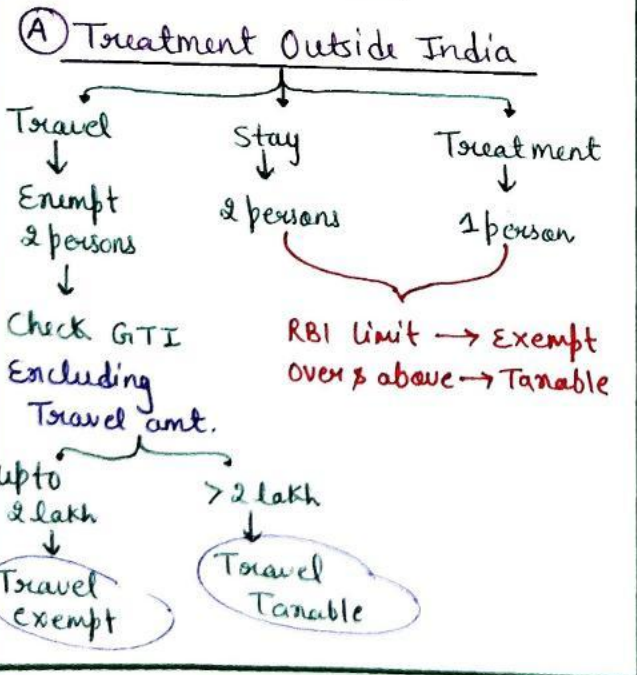 A Treatment Outside India
Travel
Exempt
2 persons
Check GTI
Excluding
Travel amt.
upto
2 lakh
Travel
exempt
> 2 lakh
Travel
Taxable
Stay
2 persons
Treatment
1 person
RBI limit → Exempt
Over & above → Taxable